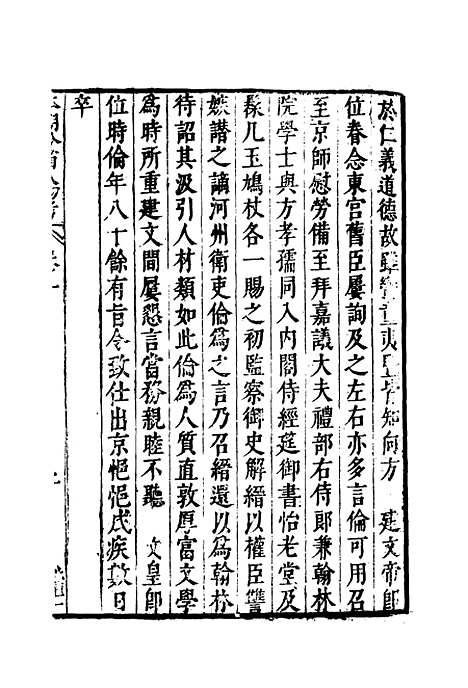 於仁義道德故雖蠻童夷豎皆知向方　建文帝即
位眷念東宮舊臣屢詢及之左右亦多言倫可用召
至京師慰勞備至拜嘉議大夫禮部右侍郎兼翰林
院學士與方孝孺同入內閣侍經筵御書怡老堂及
髹几玉鳩杖各一賜之初監察御史解縉以權臣讐
嫉譖之謫河州衛吏倫為之言乃召縉還以為翰林
待詔其汲引人材類如此倫為人質直敦厚富文學
為時所重建文間屢懇言當務親睦不聽　文皇即
位時倫年八十餘有旨令致仕出京悒悒成疾數日
卒